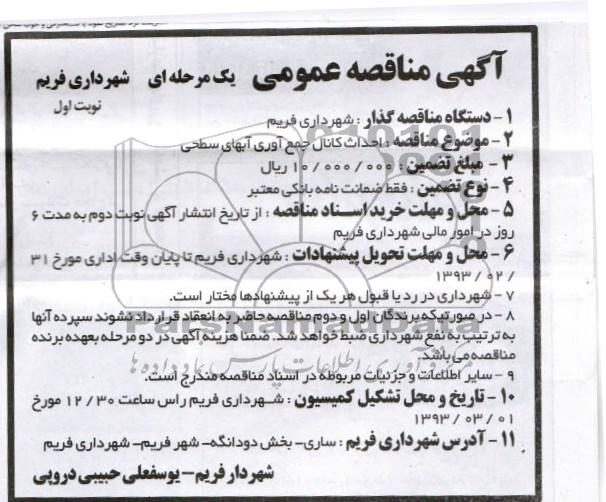 آگهی مناقصه عمومی یک مرحله ای شهرداری فریم
نوبت اول
۱- دستگاه مناقصه گذار : شهرداری فریم
۲- موضوع مناقصه : احداث کانال جمع آوری آبهای سطحی
۳- مبلغ تضمین : ۱۰/۰۰۰/۰۰۰ ریال
۴- نوع تضمین : فقط ضمانت نامه بانکی معتبر
۵- محل و مهلت خرید اسناد مناقصه : از تاریخ انتشار آگهی نوبت دوم به مدت ۶
روز در امور مالی شهرداری فریم
۶- محل و مهلت تحویل پیشنهادات : شهرداری فریم تا پایان وقت اداری مورخ ۳۱
/ ۰۲ / ۱۳۹۳
۷- شهرداری در رد یا قبول هر یک از پیشنهادها مختار است.
۸- در صورتیکه برندگان اول و دوم مناقصه حاضر به انعقاد قرارداد نشوند سپرده آنها
به ترتیب به نفع شهرداری ضبط خواهد شد. ضمنا هزینه آگهی در دو مرحله بعهده برنده
مناقصه می باشد.
۹- سایر اطلاعات و جزئیات مربوطه در اسناد مناقصه مندرج است.
۱۰- تاریخ و محل تشکیل کمیسیون : شهرداری فریم راس ساعت ۱۲/۳۰ مورخ
۰۱ / ۰۳ / ۱۳۹۳
۱۱- آدرس شهرداری فریم : ساری- بخش دودانگه- شهر فریم- شهرداری فریم
شهردار فریم- یوسفعلی حبیبی دروپی
ParsNamadData
مرکز فرآوری اطلاعات پارس نماد داده ها